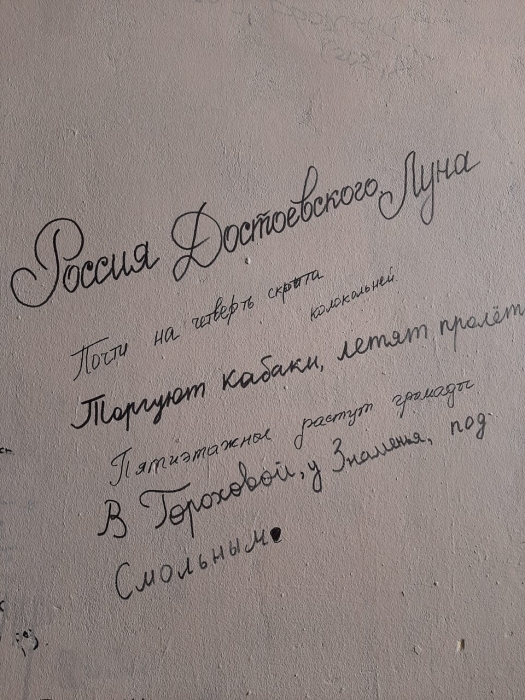 Россия Достоевского. Луна
Почти на четверть скрыта
колокольней.
Торгуют кабаки, летят пролёт
Пятиэтажные растут громады
В Гороховой, у Знаменья, под
Смольным.